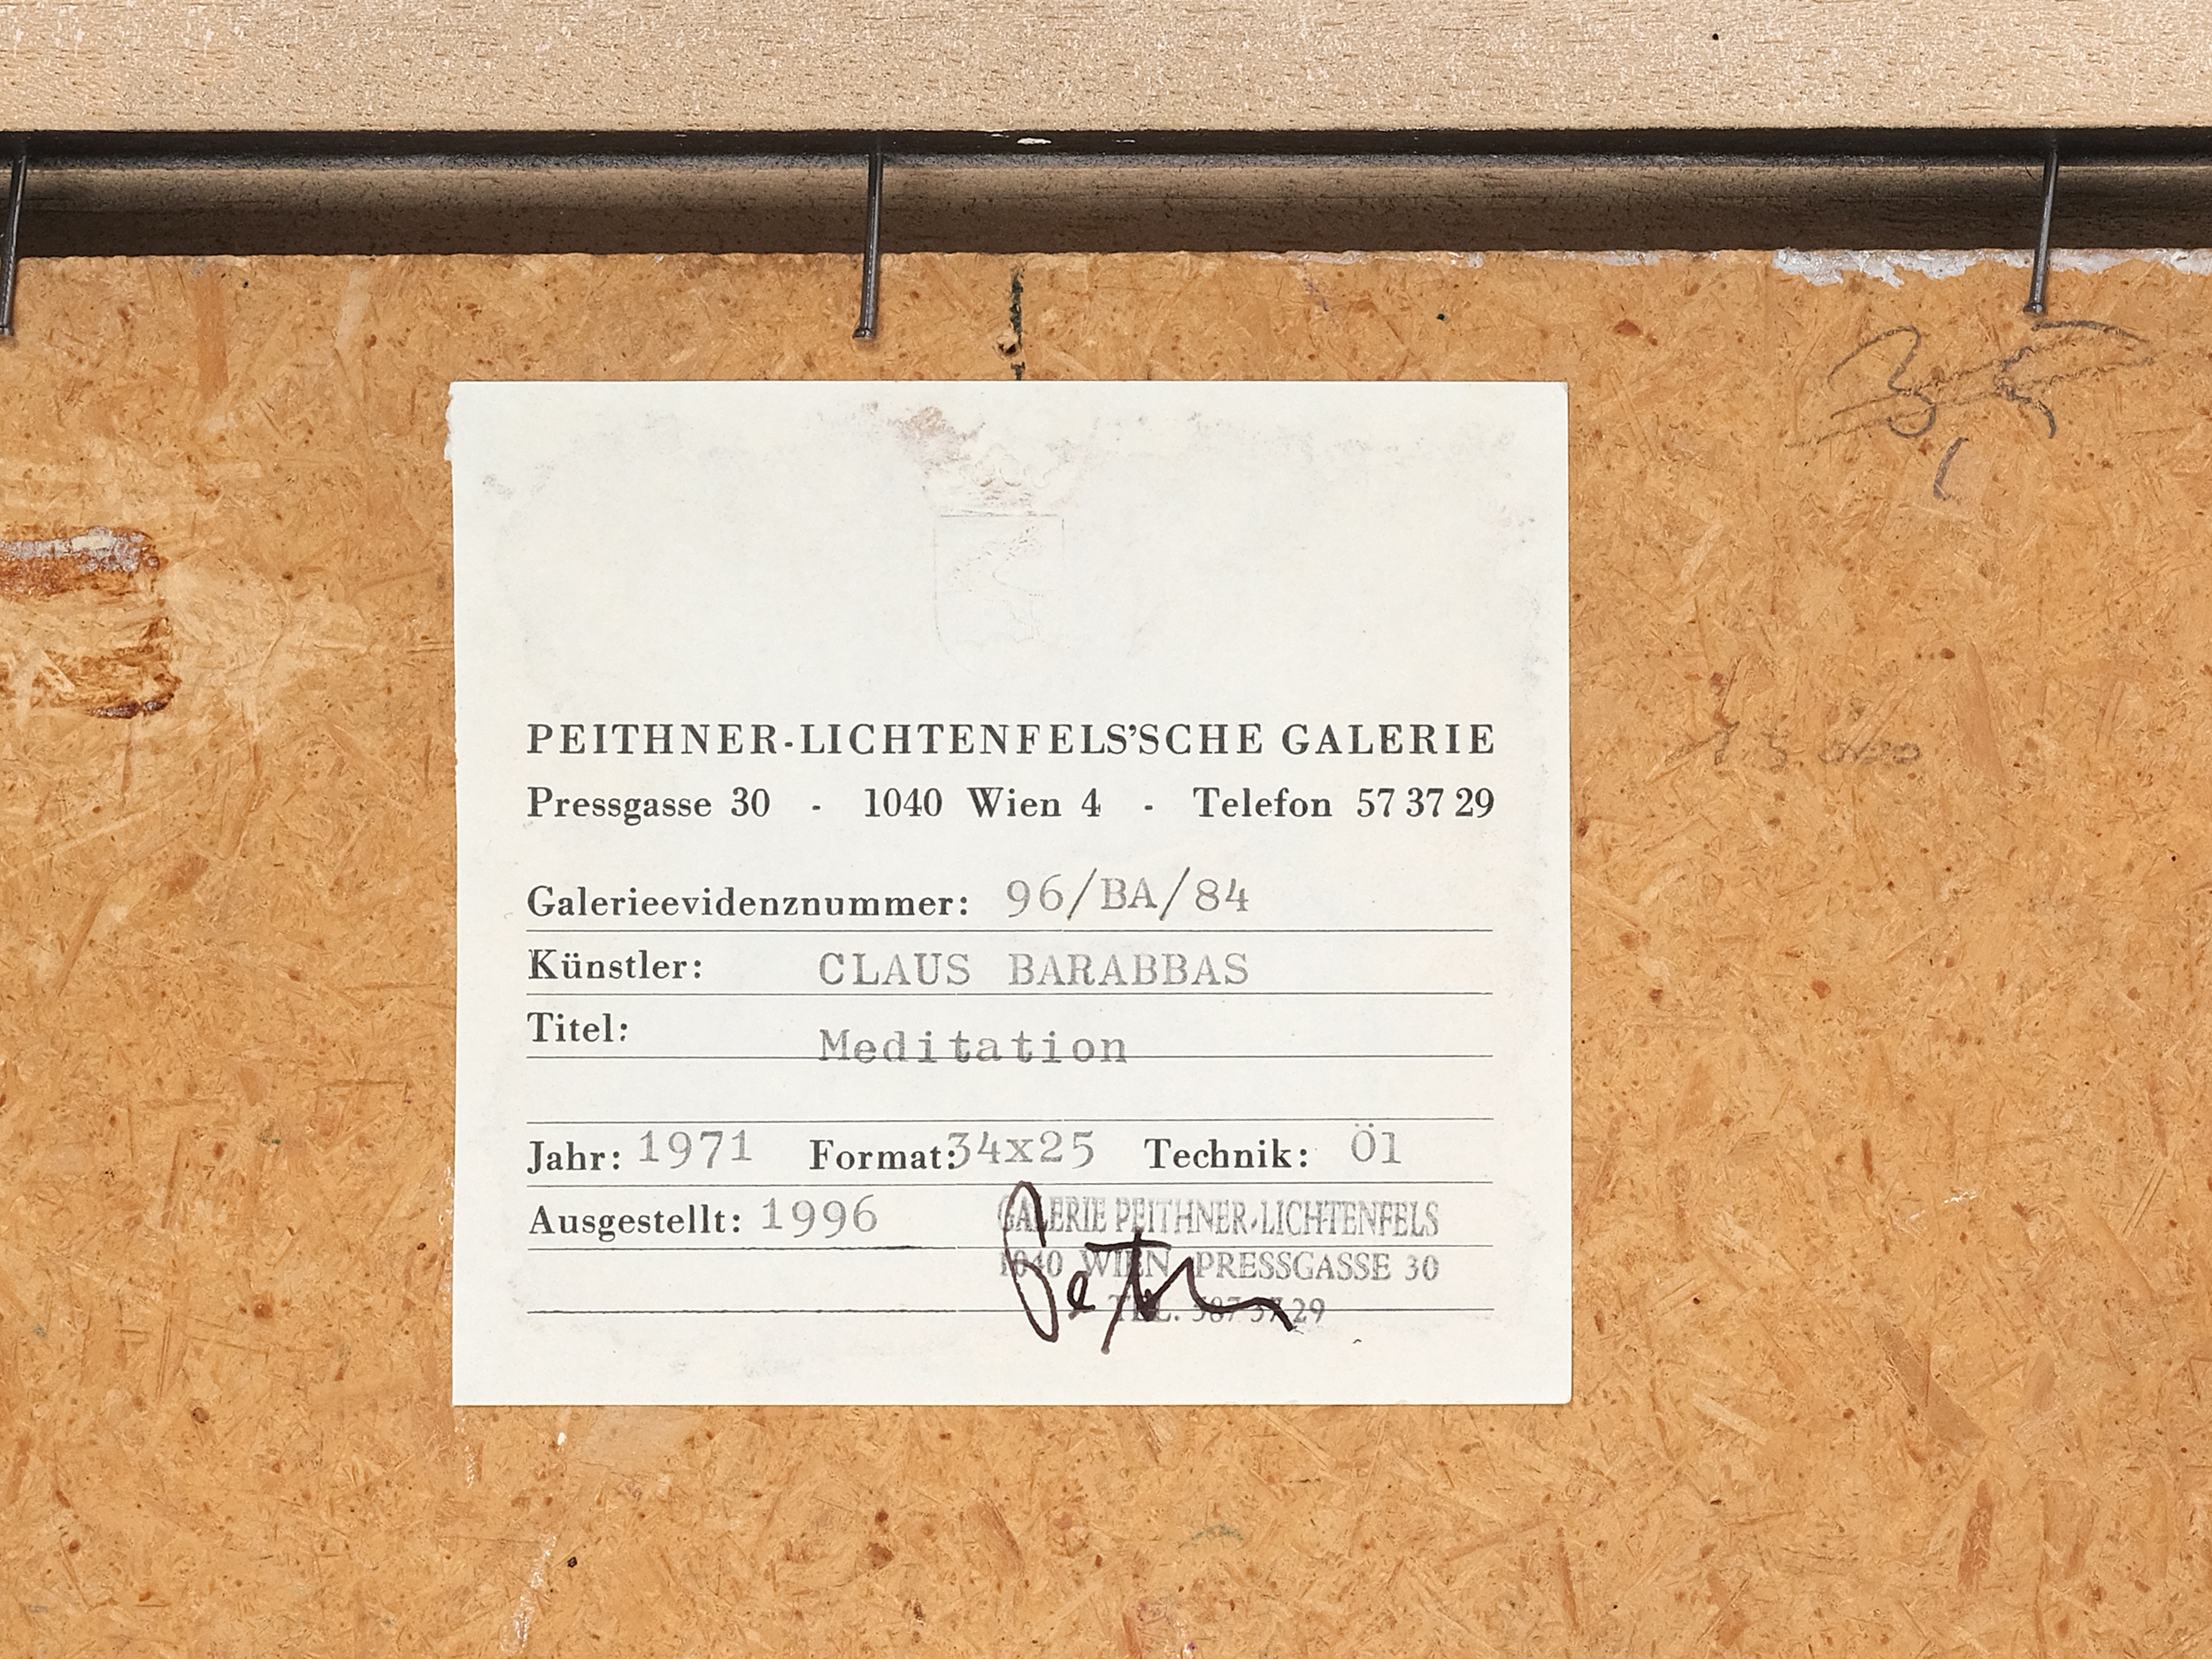 PEITHNER-LICHTENFELS'SCHE GALERIE
Pressgasse 30 - 1040 Wien 4 - Telefon 57 37 29
Galerieevidenznummer: 96/BA/84
Künstler: CLAUS BARABBAS
Titel: Meditation
Jahr: 1971 Format: 34x25 Technik: Öl
Ausgestellt: 1996
GALERIE PEITHNER-LICHTENFELS
1040 WIEN PRESSGASSE 30
TEL. 587 37 29